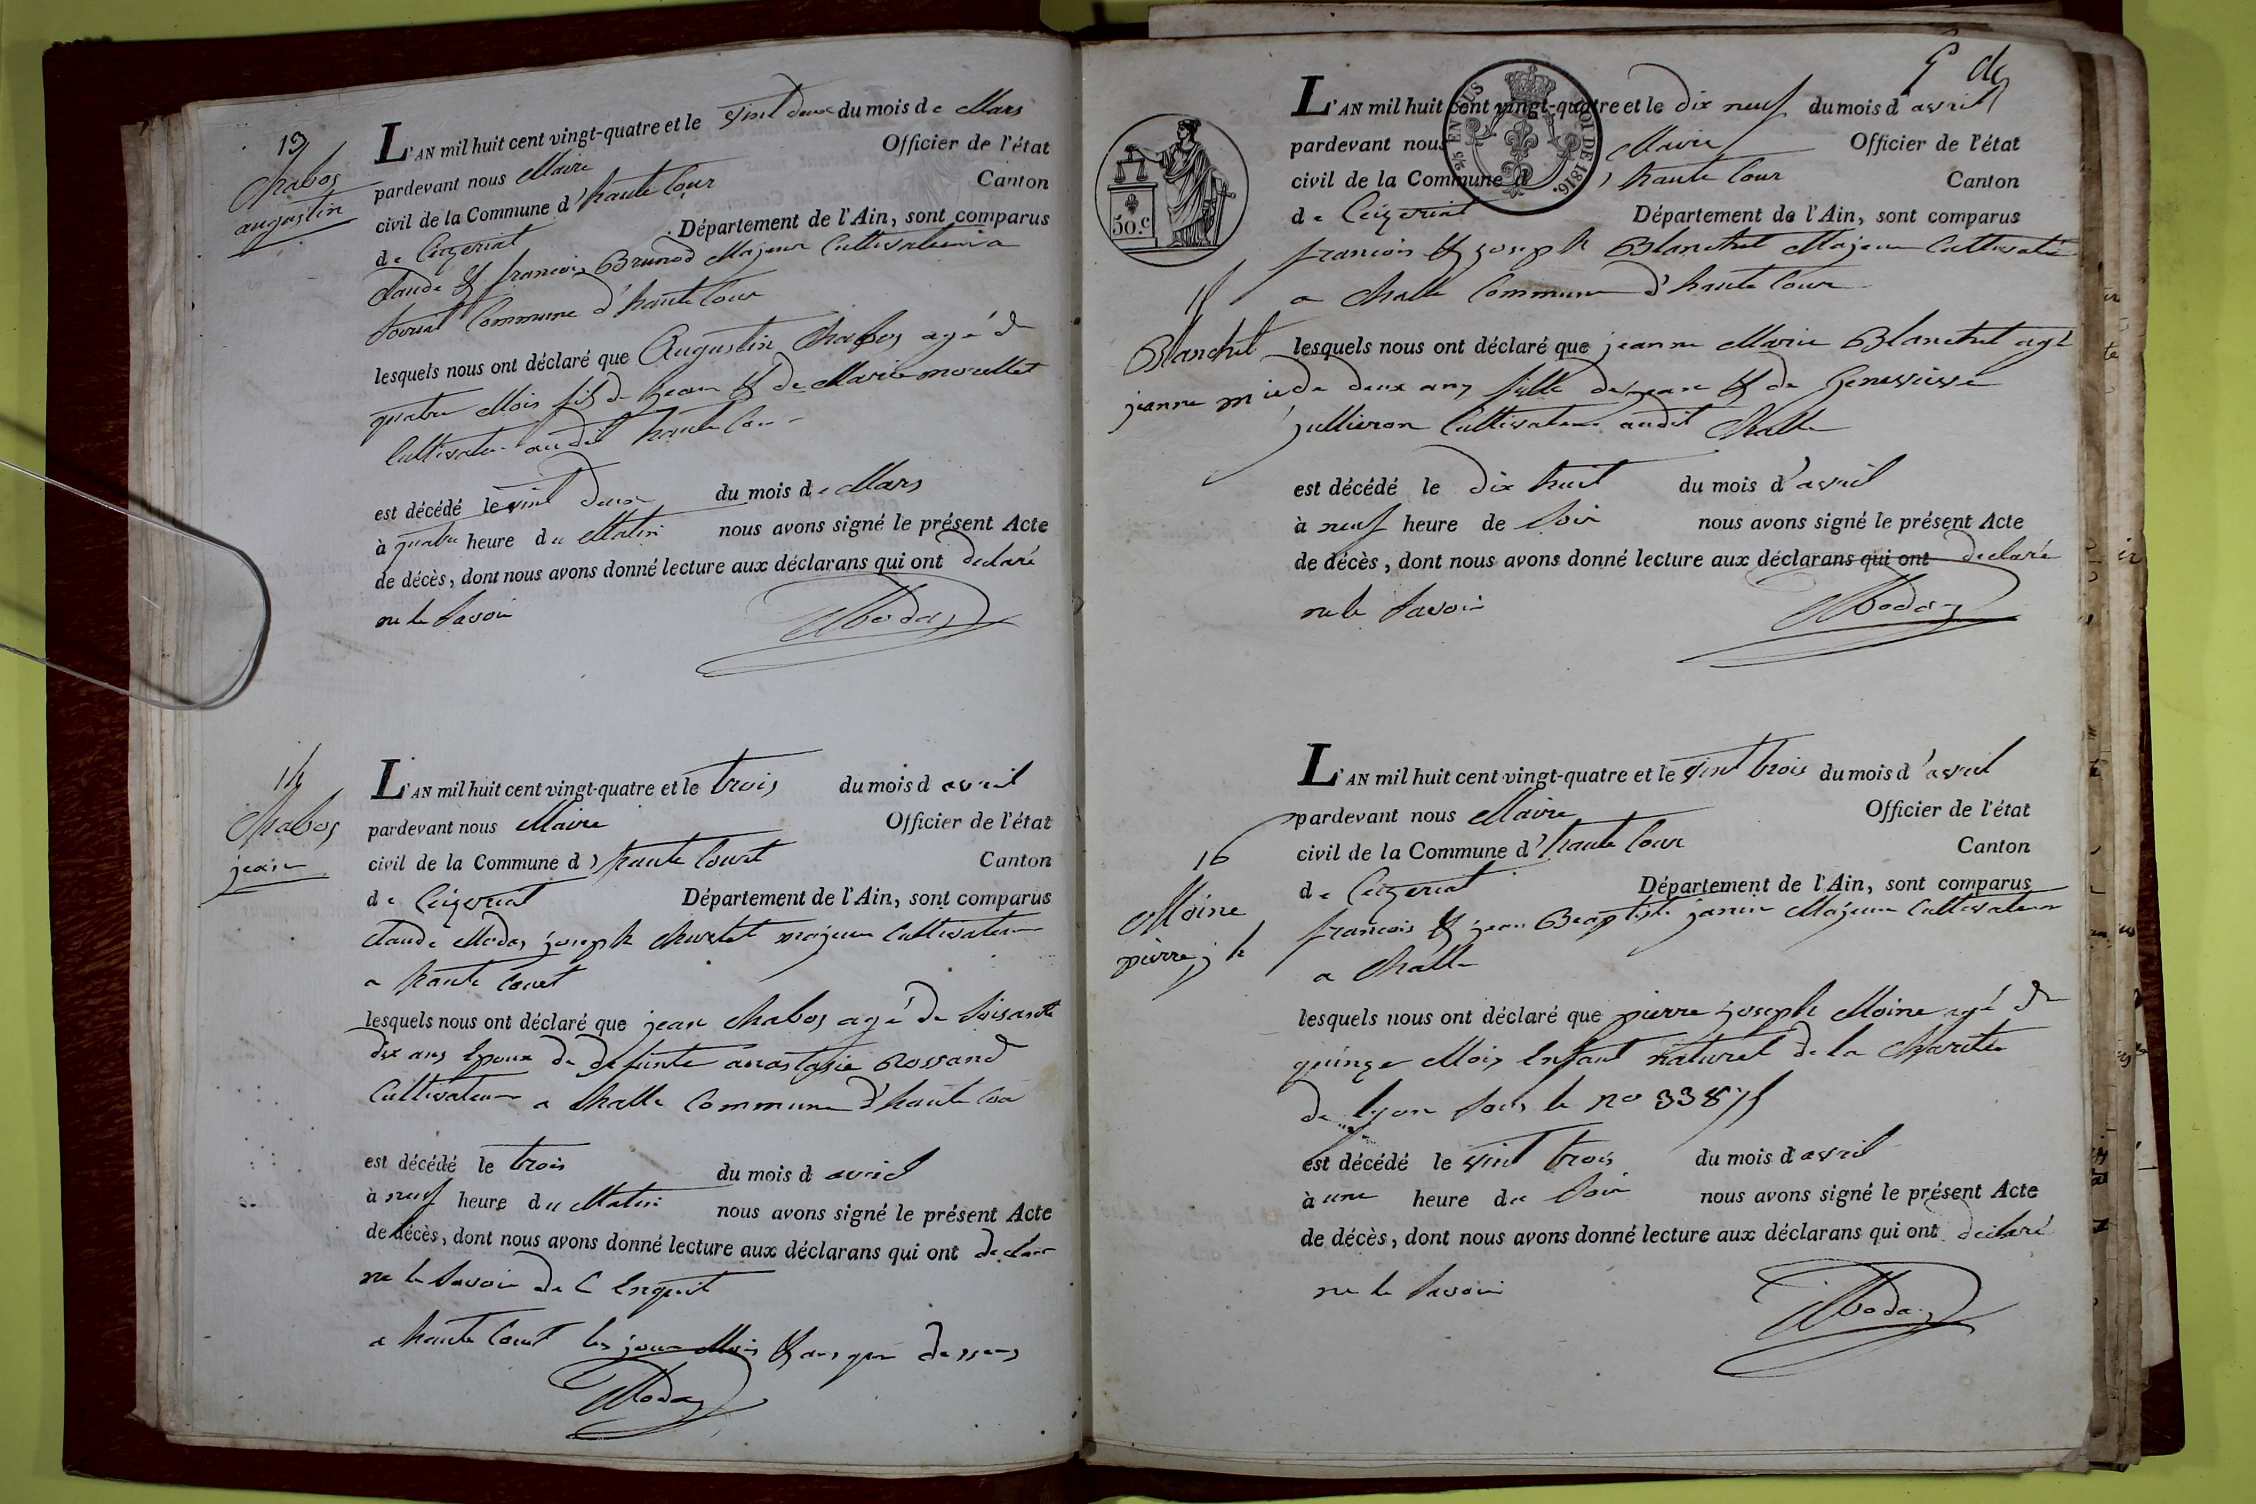 13
Chabos
augustin
L'AN mil huit cent vingt-quatre et le vint deux du mois de Mars
pardevant nous Maire Officier de l'état
civil de la Commune d'haute Cour Canton
de Ceizeriat Département de l'Ain, sont comparus
Claude & francois Brunod Majeur Cultivateur a
Commune d'haute Cour
lesquels nous ont déclaré que Augustin Chabos agé de
quatre Mois fils de jean & de Marie
Cultivateur audit haute Cour
est décédé le vint deux du mois de Mars
à quatre heure du Matin nous avons signé le présent Acte
de décès, dont nous avons donné lecture aux déclarans qui ont declaré
ne le Savoir
14
Chabos
jean
L'AN mil huit cent vingt-quatre et le trois du mois d avril
pardevant nous Maire Officier de l'état
civil de la Commune d'haute Court Canton
de Ceizeriat Département de l'Ain, sont comparus
Claude joseph majeur Cultivateur
a haute Court
lesquels nous ont déclaré que jean Chabos agé de Soisante
dix ans Epoux de defunte anastasie Rossand
Cultivateur a Challe Commune d'haute Cour
est décédé le trois du mois d avril
à neuf heure du Matin nous avons signé le présent Acte
de décès, dont nous avons donné lecture aux déclarans qui ont declaré
ne le Savoir de C Enquit
a haute Court les jour Mois & an que dessus
5
50.c
EN SUS
LOI DE 1816.
15
Blanchet
jeanne mie
L'AN mil huit cent vingt-quatre et le dix neuf du mois d avril
pardevant nous Maire Officier de l'état
civil de la Commune d'haute Cour Canton
de Ceizeriat Département de l'Ain, sont comparus
francois & joseph Blanchet Majeur Cultivateur
a Challe Commune d'haute Cour
lesquels nous ont déclaré que jeanne Marie Blanchet agé
de deux ans fille de jean & de Genevieve
jullieron Cultivateur audit Challe
est décédé le dix huit du mois d'avril
à neuf heure de Soir nous avons signé le présent Acte
de décès, dont nous avons donné lecture aux déclarans qui ont declaré
ne le Savoir
16
Moine
pierre jh
L'AN mil huit cent vingt-quatre et le vint trois du mois d'avril
pardevant nous Maire Officier de l'état
civil de la Commune d'haute Cour Canton
de Ceizeriat Département de l'Ain, sont comparus
francois & jean Beaptiste janin Majeur Cultivateur
a Challe
lesquels nous ont déclaré que pierre joseph Moine agé de
quinze Mois Enfant naturel de la Charitée
de Lyon Sous le no 33875
est décédé le vint trois du mois d avril
à une heure du Soir nous avons signé le présent Acte
de décès, dont nous avons donné lecture aux déclarans qui ont declaré
ne le Savoir